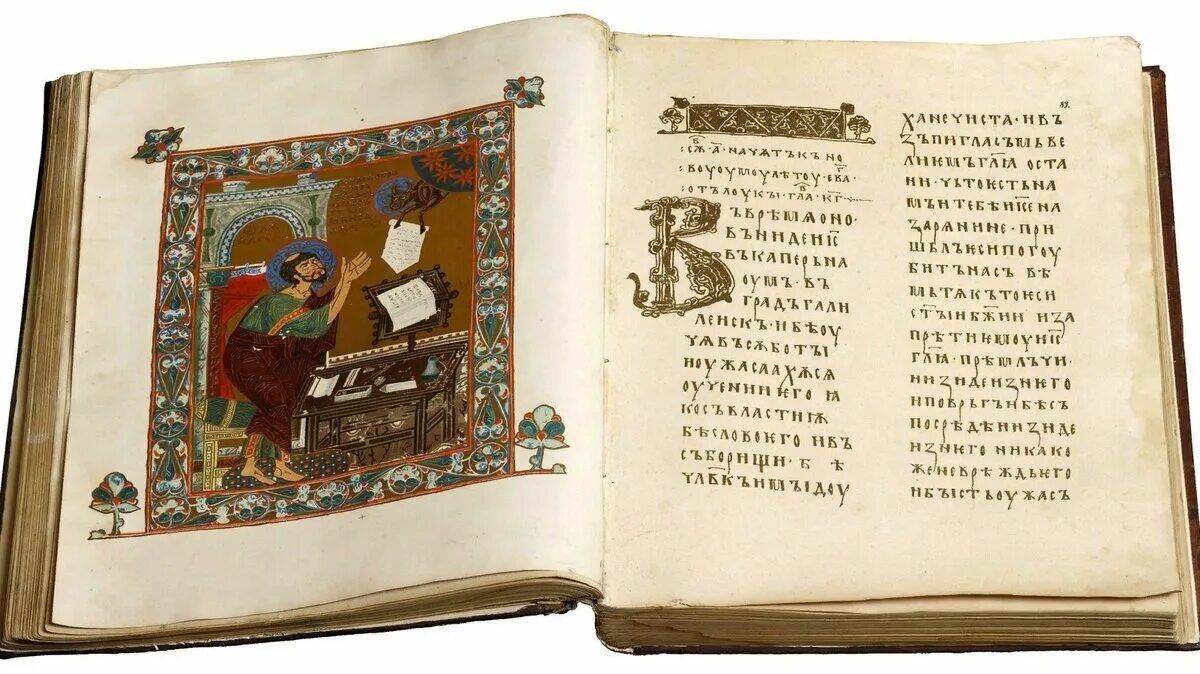 89.
·сѫ҃·а҃·начѧтъкъ но
·воуоумоу лѣтоу·ева҃г·
·отълоукы·гла҃в·кг҃·
Въврѣмѧоно·
въниде ис҃
въкаперьна
оумъ·въ
градъгали
леискъ·и бѣоу
чѧ въсѫботы
и оужасаахѫсѧ
оученииѥго ꙗ
косъвластиѭ
бѣслово ѥго и въ
съборищи·бѣ
чл҃вкъ имыи доу
ханечиста·и въ
зъпигласъмьве
ликмъ гл҃ѧ оста
ни·чьтоѥстьна
мъ и тебѣ ис҃е на
зарѧнине·при
шьлъ ѥси погоу
битънасъ вѣ
мьтѧкътоѥси
ст҃ыи б҃жии иза
прѣтиѥмоу ис҃
гл҃ѧ·прѣмлъчи·
иизидеизнѥго
и повръгъ и бѣсъ
посрѣдѣ изиде
изнѥго никако
женеврѣждьѥго
и бысть оужасъ